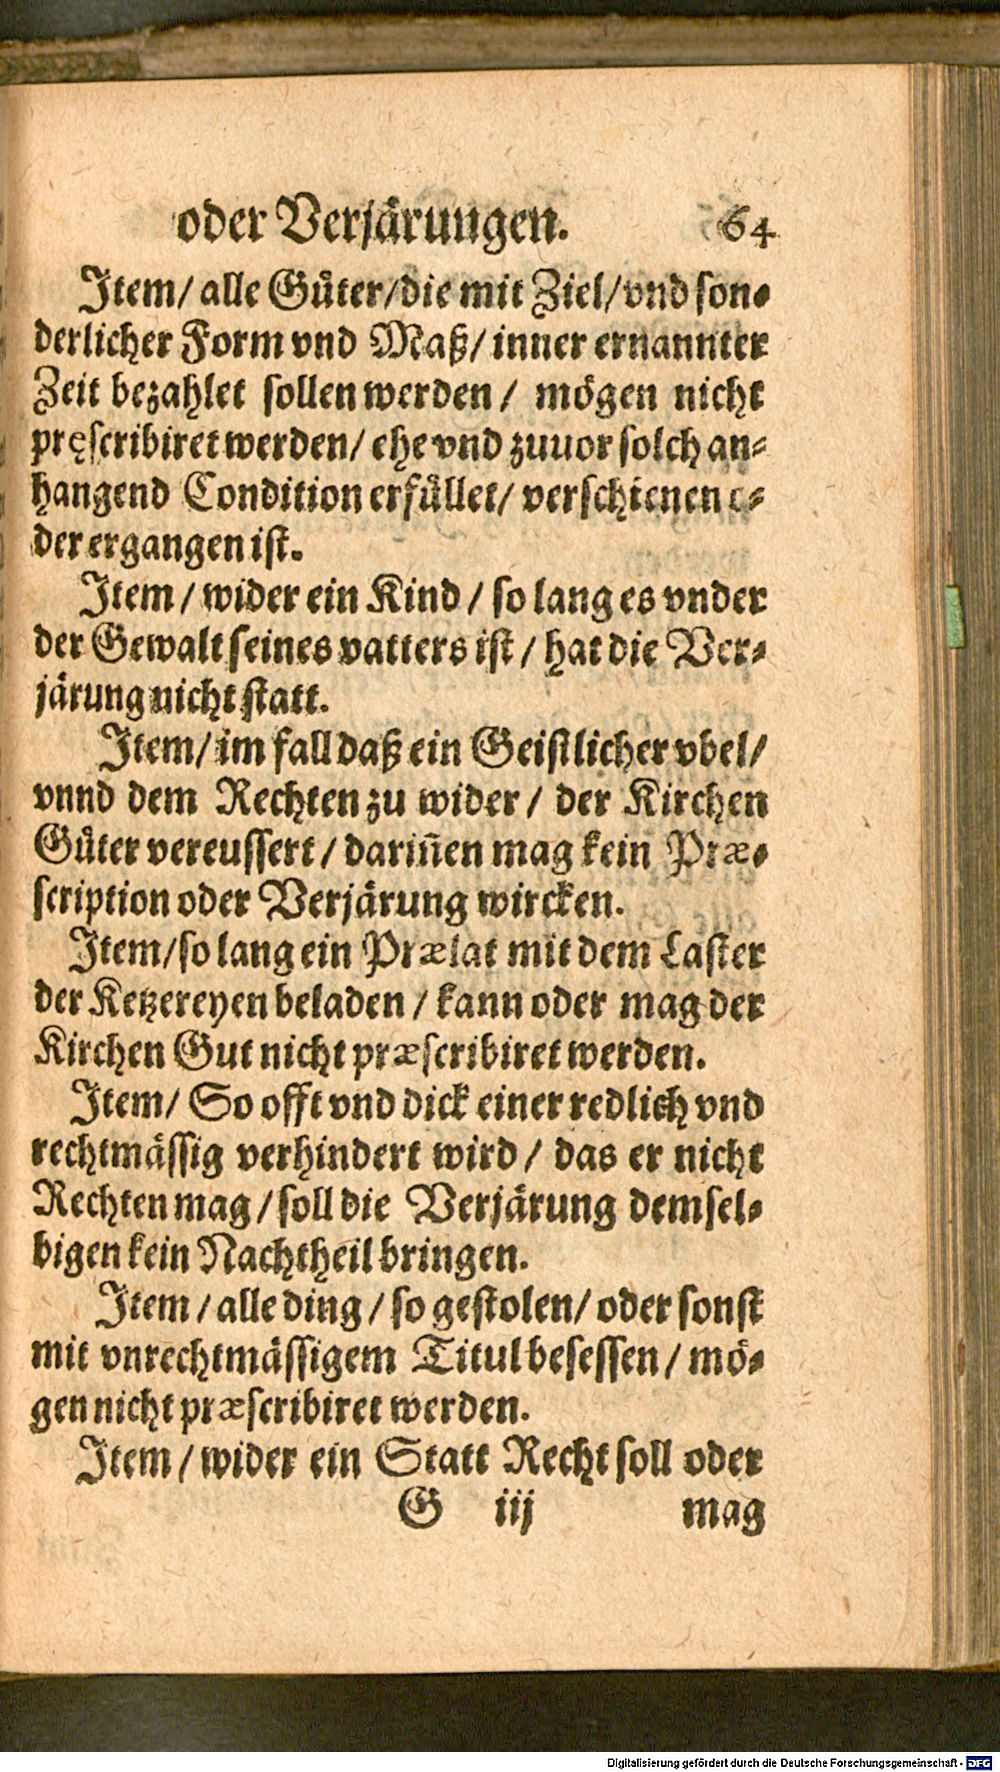 oder Verjärungen. 64
Item/ alle Güter/die mit Ziel/vnd son-
derlicher Form vnd Maß/ inner ernannter
Zeit bezahlet sollen werden/ mögen nicht
pręscribiret werden/ ehe vnd zuuor solch an-
hangend Condition erfüllet/ verschienen o-
der ergangen ist.
Item/ wider ein Kind/ so lang es vnder
der Gewalt seines vatters ist/ hat die Ver-
järung nicht statt.
Item/ im fall daß ein Geistlicher vbel/
vnnd dem Rechten zu wider/ der Kirchen
Güter vereussert/ dariñen mag kein Præ-
scription oder Verjärung wircken.
Item/so lang ein Prælat mit dem Laster
der Ketzereyen beladen/ kann oder mag der
Kirchen Gut nicht præscribiret werden.
Item/ So offt vnd dick einer redlich vnd
rechtmässig verhindert wird/ das er nicht
Rechten mag/ soll die Verjärung demsel-
bigen kein Nachtheil bringen.
Item/ alle ding/ so gestolen/ oder sonst
mit vnrechtmässigem Titul besessen/ mö-
gen nicht præscribiret werden.
Item/ wider ein Statt Recht soll oder
G iij mag
Digitalisierung gefördert durch die Deutsche Forschungsgemeinschaft - DFG